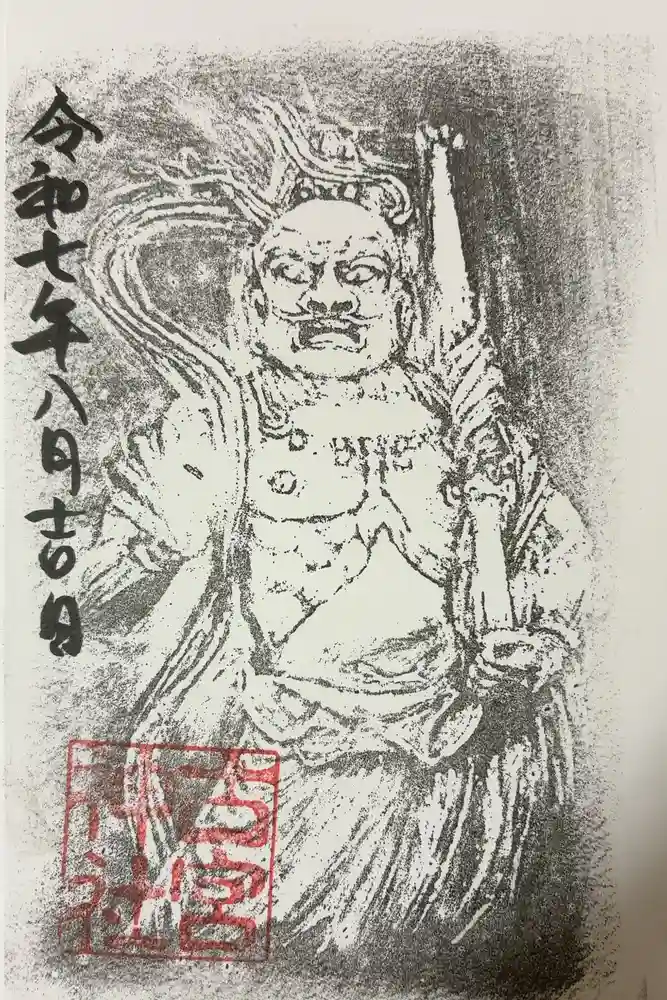 令和七年八月十日
宮
神社